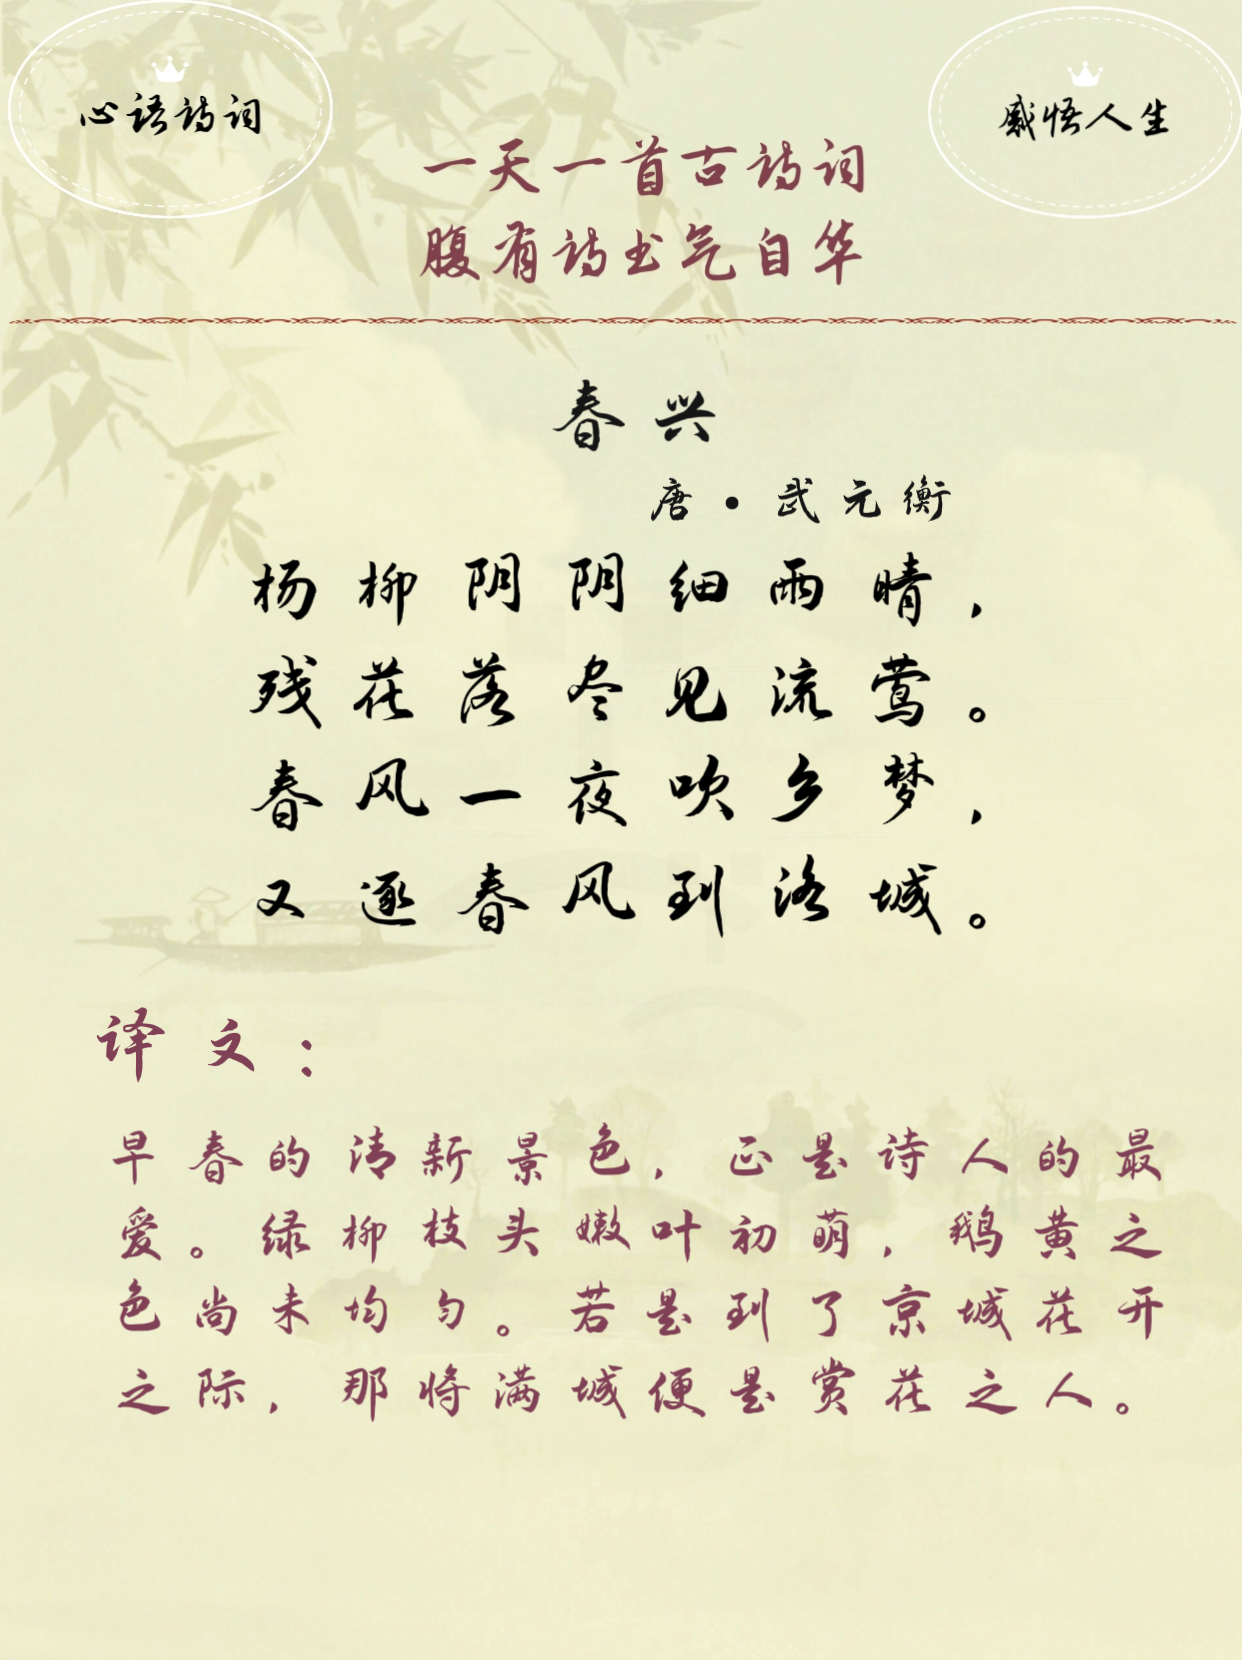 心语诗词
感悟人生
一天一首古诗词
腹有诗书气自华
春兴
唐·武元衡
杨柳阴阴细雨晴，
残花落尽见流莺。
春风一夜吹乡梦，
又逐春风到洛城。
译文：
早春的清新景色，正是诗人的最
爱。绿柳枝头嫩叶初萌，鹅黄之
色尚未均匀。若是到了京城花开
之际，那将满城便是赏花之人。